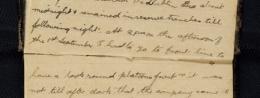 midnight & remained in reserve trenches till
following night. At 4pm the afternoon of
the 1st September I had to go to front line to
have a look round platoons front & it was
not till after dark that the company came